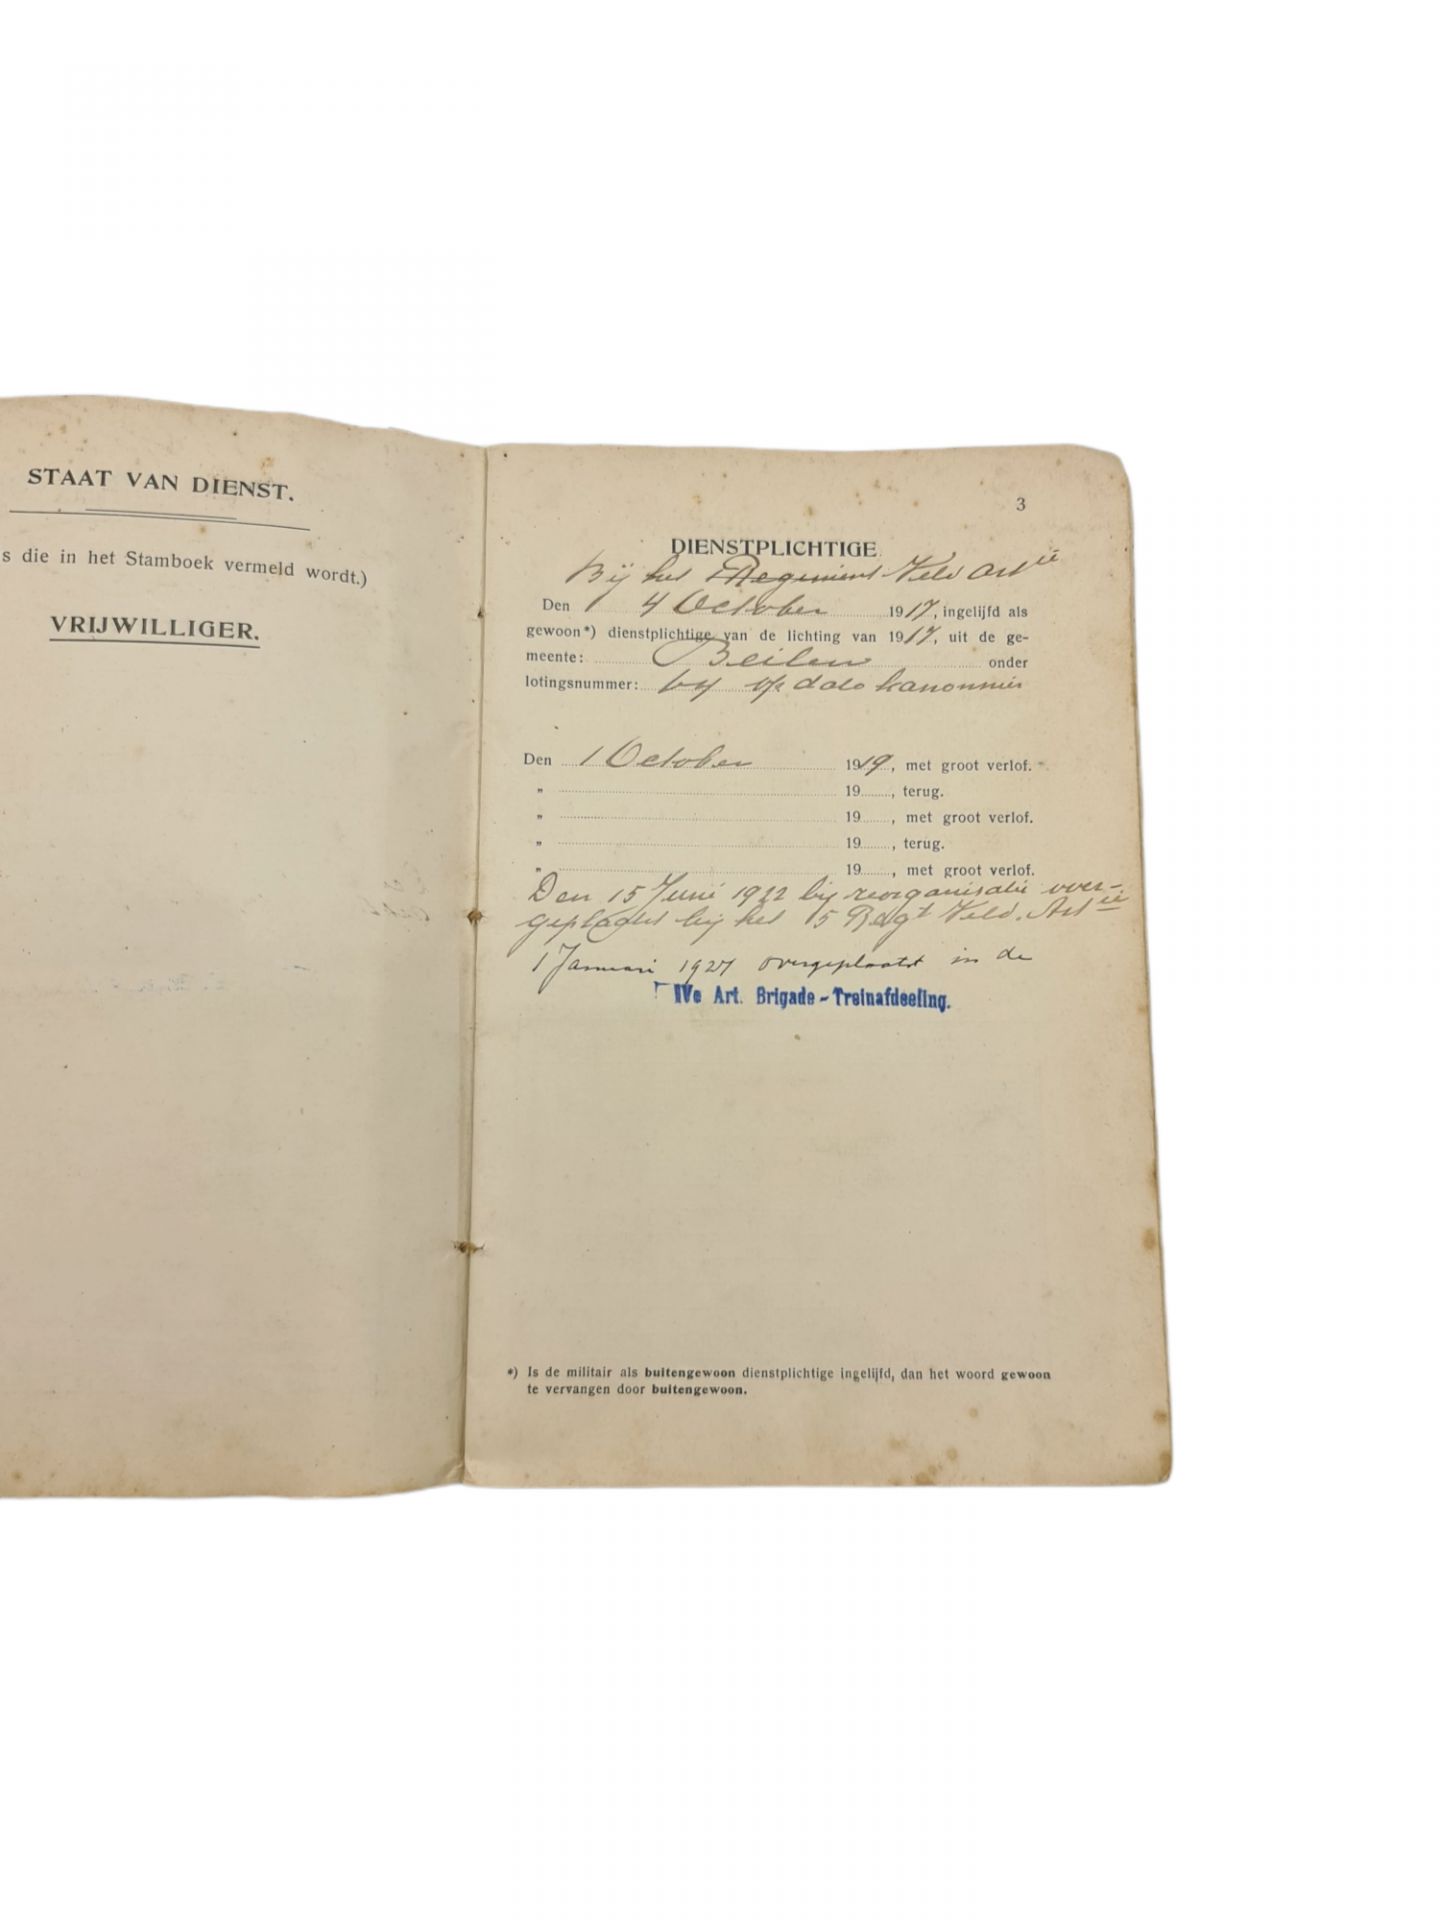 STAAT VAN DIENST.
s die in het Stamboek vermeld wordt.)
VRIJWILLIGER.
3
DIENSTPLICHTIGE
Bij het Regiment Veld Artie
Den 4 October 1917, ingelijfd als
gewoon*) dienstplichtige van de lichting van 1917, uit de ge-
meente: Beilen onder
lotingsnummer: 64 op dato kanonnier
Den 1 October 1919, met groot verlof.
" 19 , terug.
" 19 , met groot verlof.
" 19 , terug.
" 19 , met groot verlof.
Den 15 Juni 1922 bij reorganisatie over-
geplaatst bij het 5 Regt Veld. Artie
1 Januari 1927 overgeplaatst in de
IVe Art. Brigade-Treinafdeeling.
*) Is de militair als buitengewoon dienstplichtige ingelijfd, dan het woord gewoon
te vervangen door buitengewoon.